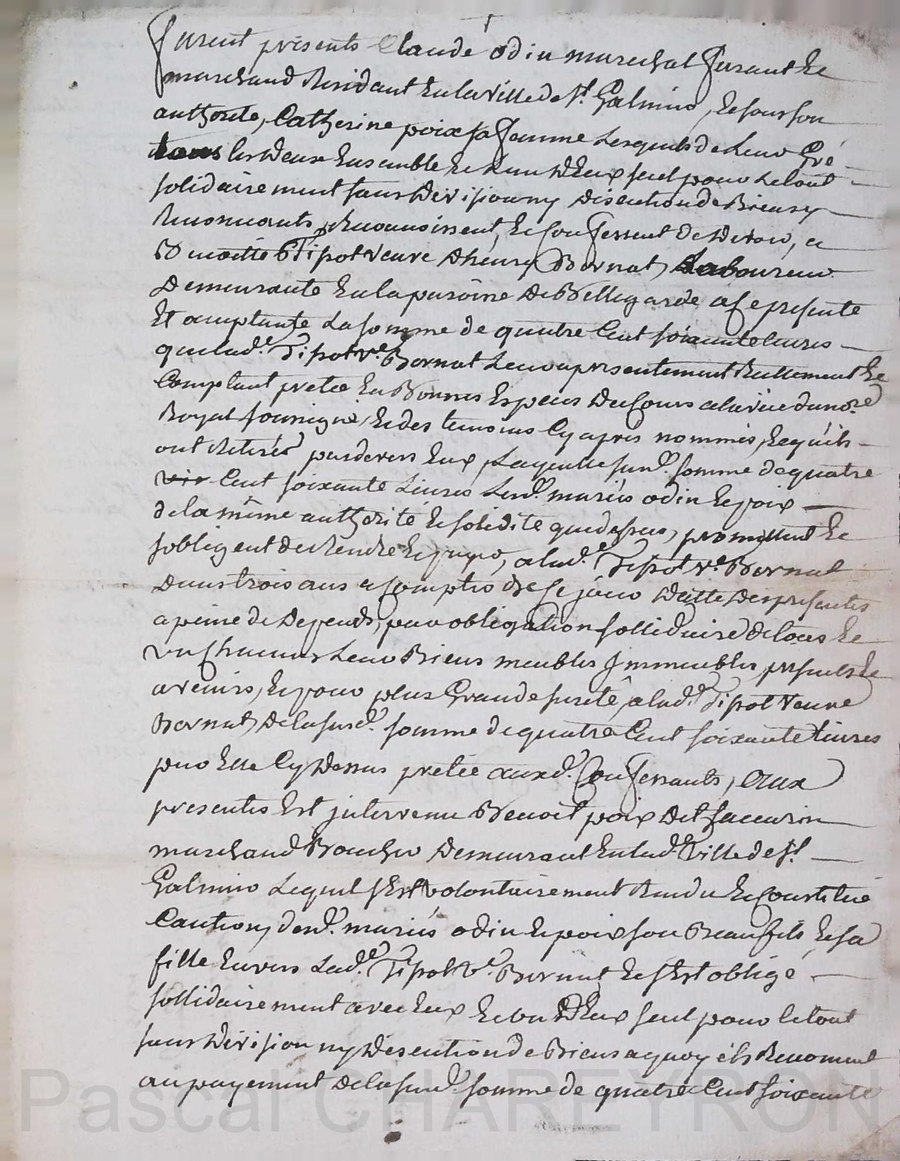 furent présents Claude odin marechal ferant Et
marchand Residant En la ville de st. Galmier, Et sous son
authorité, Catherine poix sa femme Lesquels de Leur Gré
tous les deux Ensemble Et L'un d'Eux seul pour Le tout
solidairement sans division ny discution de Biens y
Renoncants, Reconnoissent, Et Confessent de devoir, a
Benoitte Tipot veuve d'henry Bornat, Laboureur
Demeurante En la paroisse De Bellegarde, ici presente
Et acceptante La somme de quatre Cent soixante livres
que lad.e Tipot v.e Bornat Leur a presentement Reellement Et
Comptant pretée En Bonnes Especes De Cours a la vüe du no.re
Royal soussigné, Et des temoins Cy apres nommés, Et qu'ils
ont Retirés pardevers Eux, Laquelle susd. somme de quatre
Cent soixante Livres Lesd. mariés odin Et poix
de la même authorité Et solidité que dessus, promettent Et
s'obligent de Rendre Et payer, a lad.e Tipot v.e Bornat
Dans trois ans a Compter de Ce jour datte des presentes
a peine de Depends, par obligation sollidaire de tous Et
un Chacuns Leur Biens meubles & immeubles, presents Et
avenirs, Et pour plus Grande sureté, a lad. Tipot veuve
Bornat, de la susd. somme de quatre Cent soixante livres
par Elle Cy dessus pretée auxd. Confessants, aux
presentes Est intervenu Benoit poix dit
marchand Boucher Demeurant En lad. ville de st.
Galmier Lequel s'Est volontairement Rendu Et Constitué
Caution, desd. mariés odin Et poix son Beaufils Et sa
fille Envers Lad.e Tipot v.e Bornat Et s'Est obligé
sollidairement avec Eux Et un d'Eux seul pour le tout
sans division ny discution de Biens a quoy ils Renoncent
au payement de la susd. somme de quatre Cent soixante
Pascal CHAREYRON